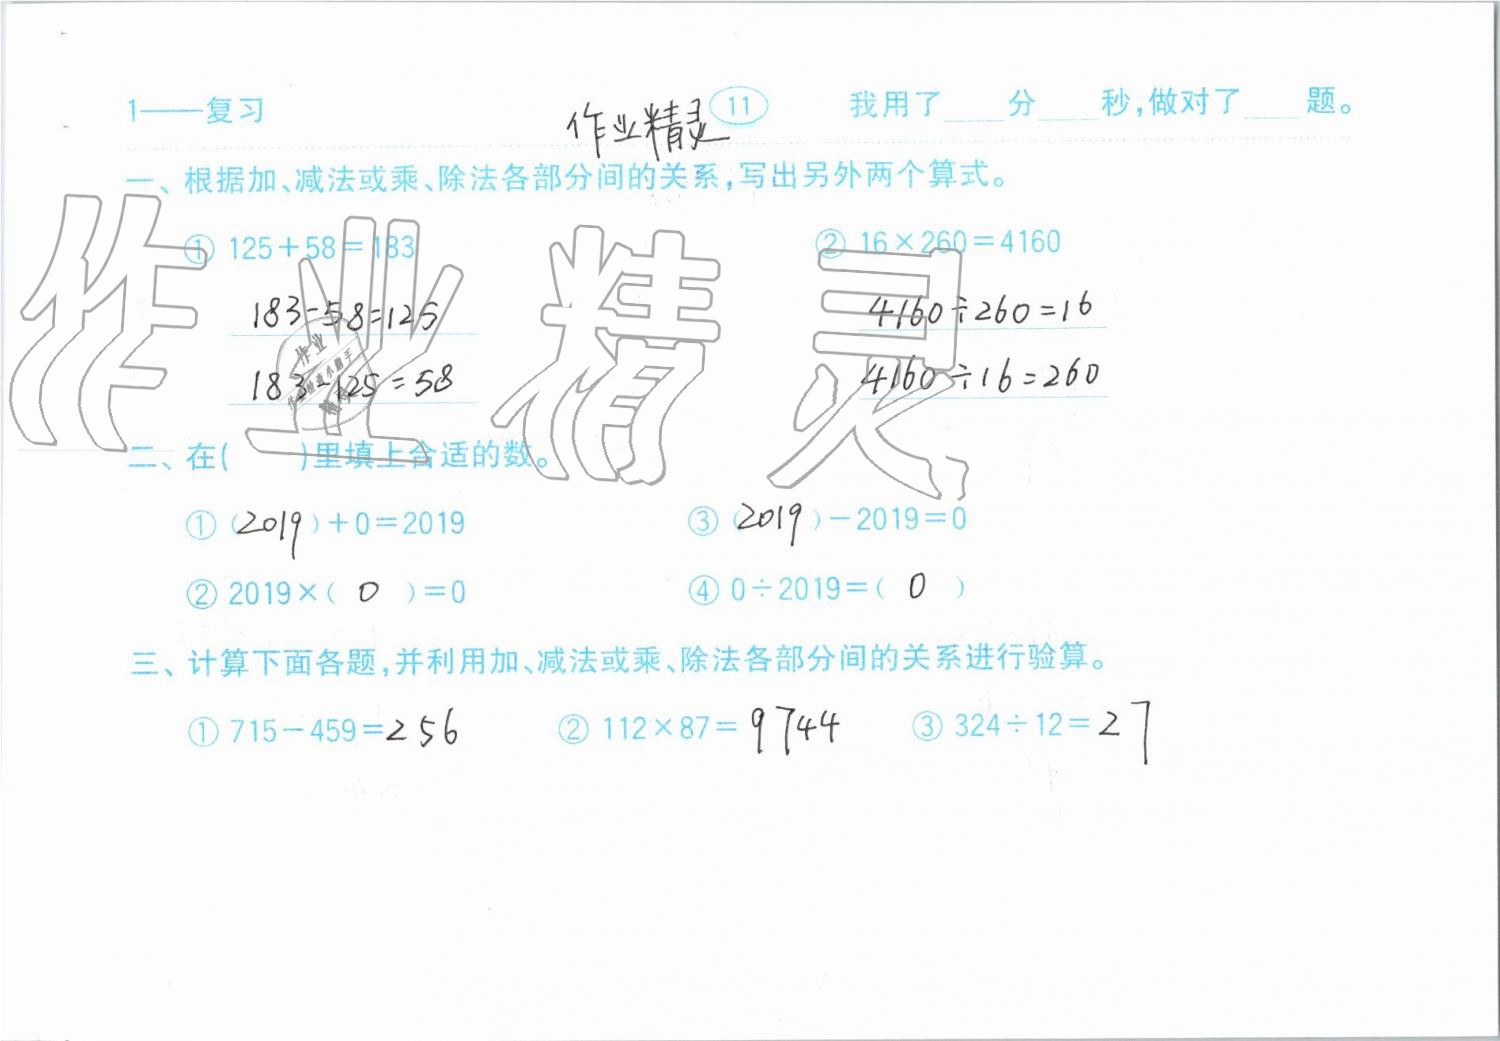 1——复习 作业精灵 11 我用了____分____秒,做对了____题。
一、根据加、减法或乘、除法各部分间的关系,写出另外两个算式。
① 125+58=183 ② 16×260=4160
183-58=125 4160÷260=16
183-125=58 4160÷16=260
作业精灵
作业
精灵
二、在( )里填上合适的数。
① (2019)+0=2019 ③ (2019)-2019=0
② 2019×( 0 )=0 ④ 0÷2019=( 0 )
三、计算下面各题,并利用加、减法或乘、除法各部分间的关系进行验算。
① 715-459=256 ② 112×87=9744 ③ 324÷12=27